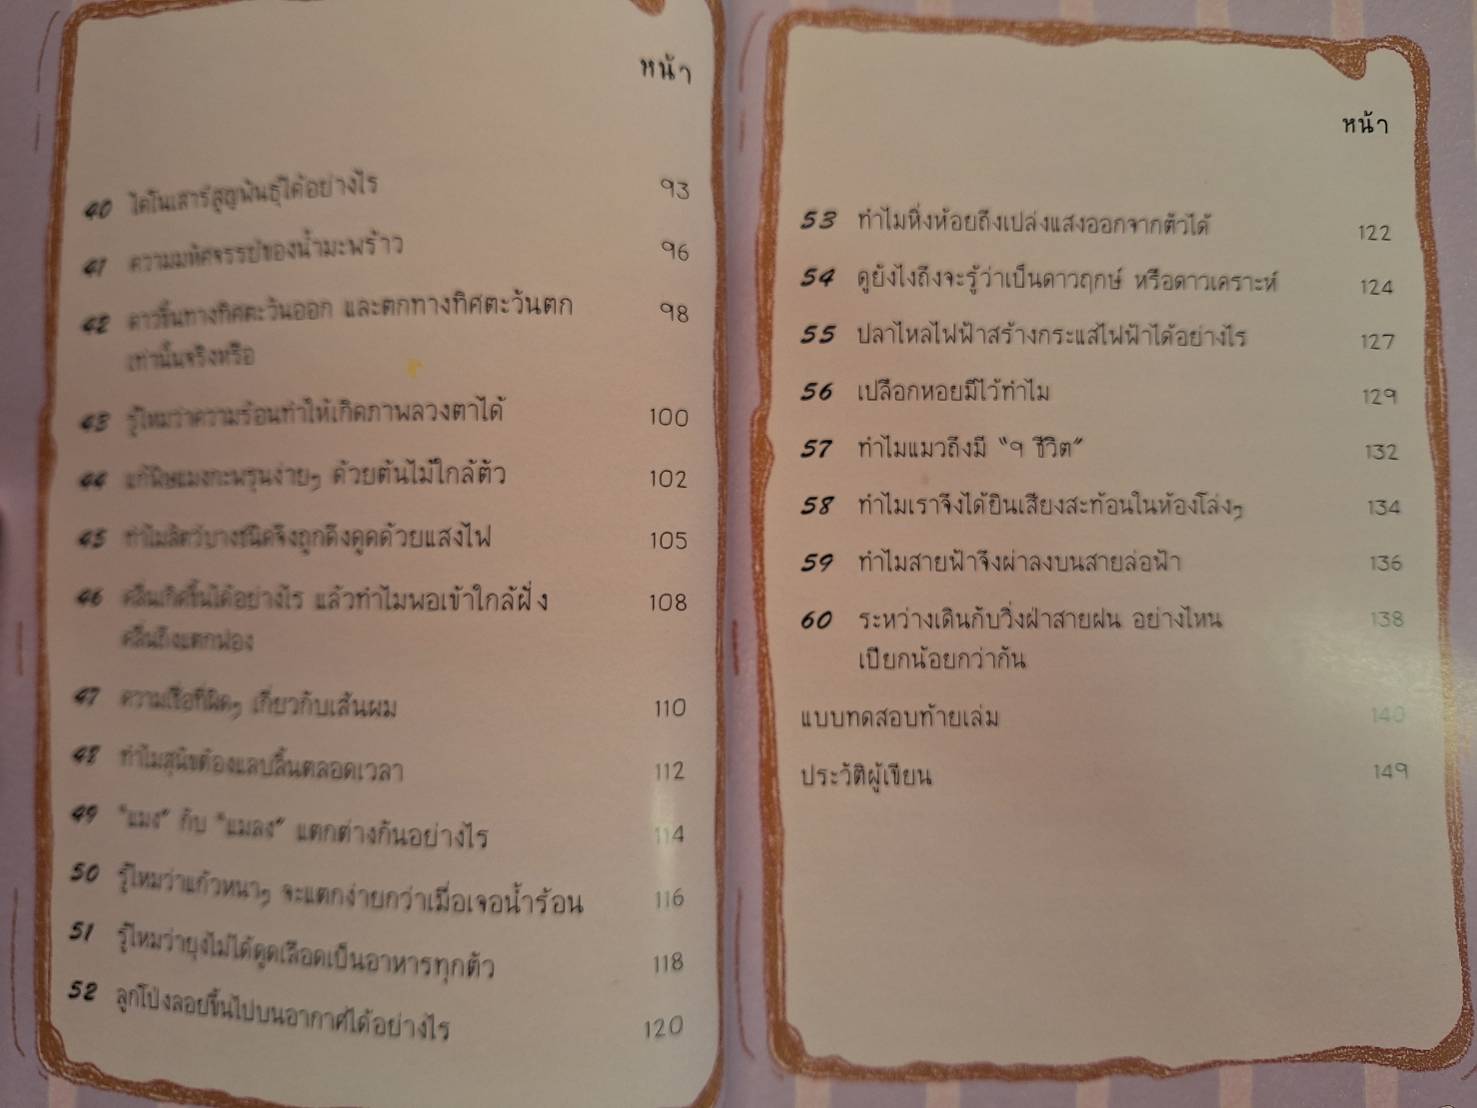 หน้า
40 ไดโนเสาร์สูญพันธุ์ได้อย่างไร 93
41 ความมหัศจรรย์ของน้ำมะพร้าว 96
42 ดาวขึ้นทางทิศตะวันออก และตกทางทิศตะวันตก 98
เท่านั้นจริงหรือ
43 รู้ไหมว่าความร้อนทำให้เกิดภาพลวงตาได้ 100
44 แก้พิษแมงกะพรุนง่ายๆ ด้วยต้นไม้ใกล้ตัว 102
45 ทำไมสัตว์บางชนิดจึงถูกดึงดูดด้วยแสงไฟ 105
46 คลื่นเกิดขึ้นได้อย่างไร แล้วทำไมพอเข้าใกล้ฝั่ง 108
คลื่นถึงแตกฟอง
47 ความเชื่อที่ผิดๆ เกี่ยวกับเส้นผม 110
48 ทำไมสุนัขต้องแลบลิ้นตลอดเวลา 112
49 "แมง" กับ "แมลง" แตกต่างกันอย่างไร 114
50 รู้ไหมว่าแก้วหนาๆ จะแตกง่ายกว่าเมื่อเจอน้ำร้อน 116
51 รู้ไหมว่ายุงไม่ได้ดูดเลือดเป็นอาหารทุกตัว 118
52 ลูกโป่งลอยขึ้นไปบนอากาศได้อย่างไร 120
หน้า
53 ทำไมหิ่งห้อยถึงเปล่งแสงออกจากตัวได้ 122
54 ดูยังไงถึงจะรู้ว่าเป็นดาวฤกษ์ หรือดาวเคราะห์ 124
55 ปลาไหลไฟฟ้าสร้างกระแสไฟฟ้าได้อย่างไร 127
56 เปลือกหอยมีไว้ทำไม 129
57 ทำไมแมวถึงมี "๙ ชีวิต" 132
58 ทำไมเราจึงได้ยินเสียงสะท้อนในห้องโล่งๆ 134
59 ทำไมสายฟ้าจึงผ่าลงบนสายล่อฟ้า 136
60 ระหว่างเดินกับวิ่งฝ่าสายฝน อย่างไหน 138
เปียกน้อยกว่ากัน
แบบทดสอบท้ายเล่ม 140
ประวัติผู้เขียน 149